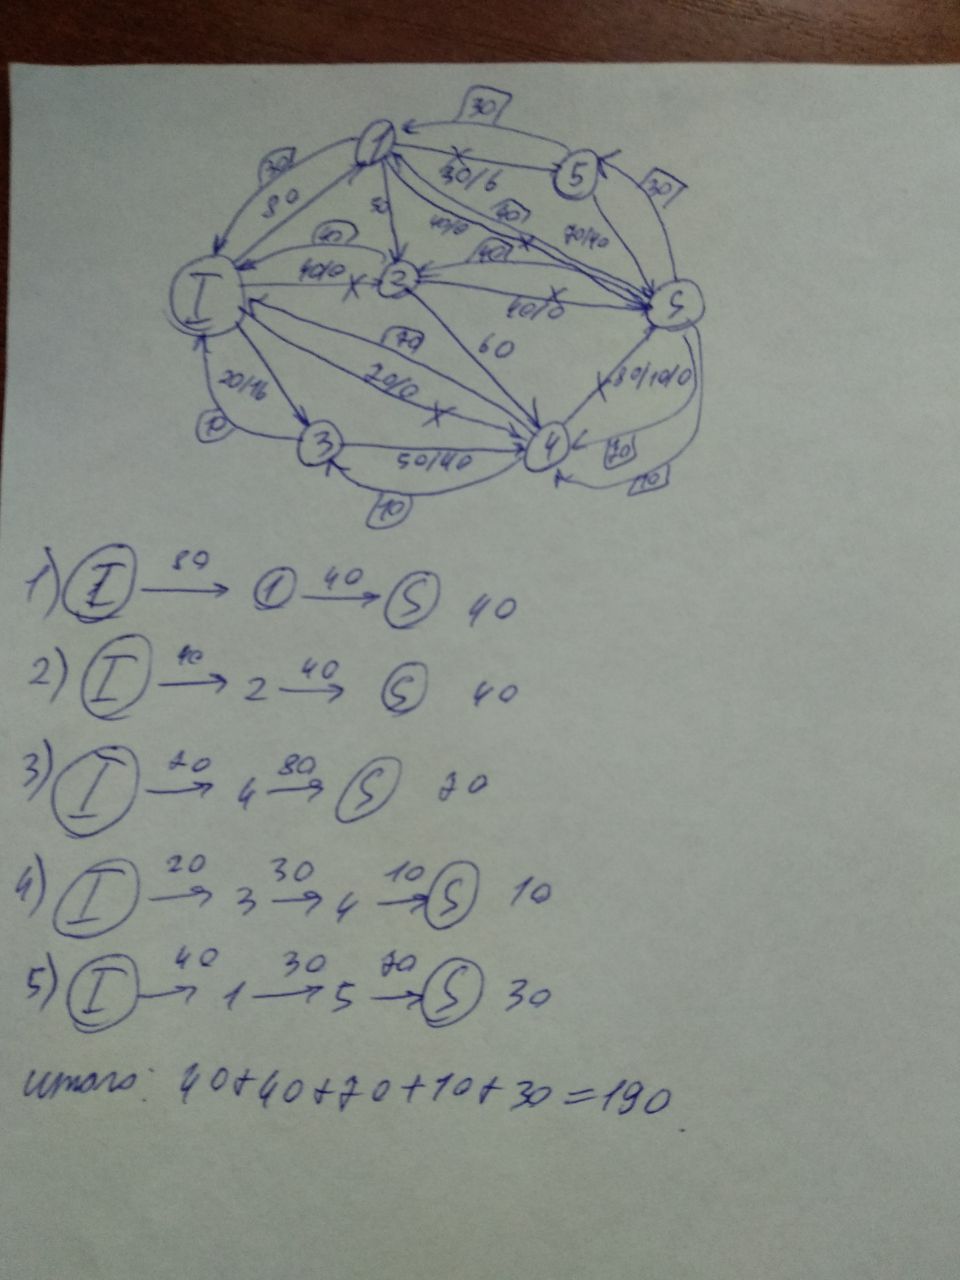 30
1
30
5
30
30/6
80
30
40/0
70
70/40
40
40
I
40/0
2
40/0
S
70
60
70/0
80/10/0
20/16
10
3
50/40
4
70
10
10
1) I 80 1 40 S 40
2) I 40 2 40 S 40
3) I 70 4 80 S 70
4) I 20 3 30 4 10 S 10
5) I 40 1 30 5 70 S 30
итого: 40+40+70+10+30=190